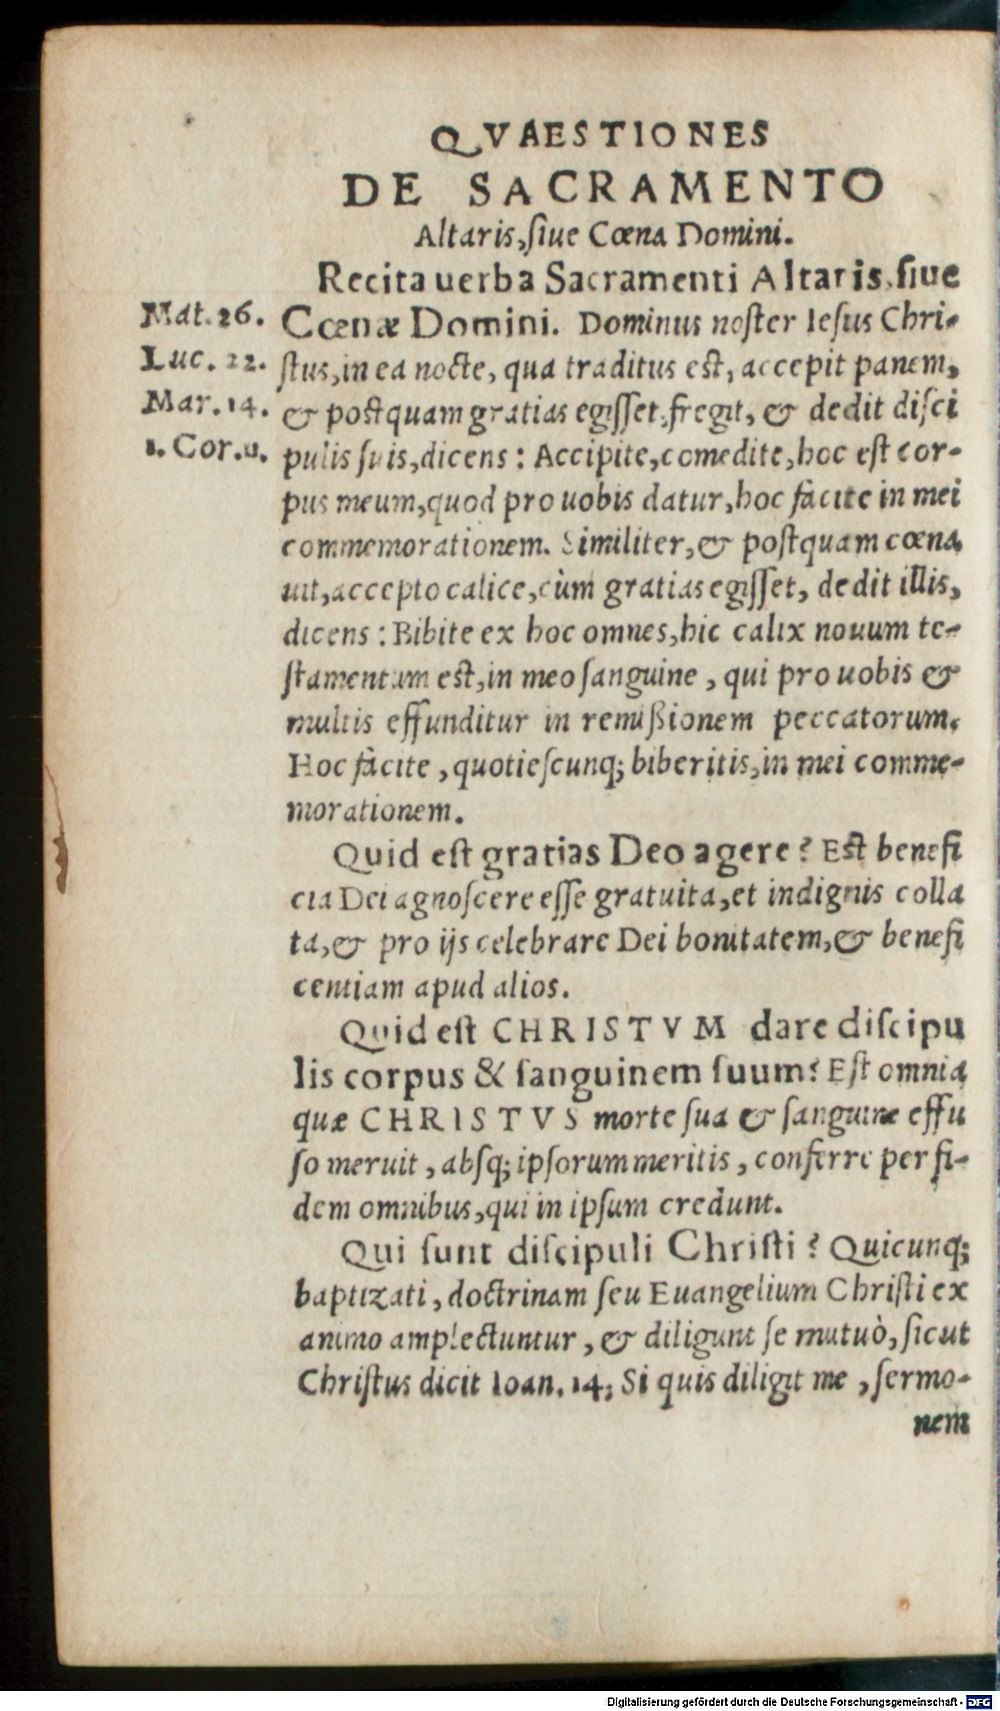 QVAESTIONES
DE SACRAMENTO
Altaris, ſiue Cœna Domini.
Recita uerba Sacramenti Altaris, ſiue
Mat. 26.
Cœnæ Domini. Dominus noſter Ieſus Chri-
Luc. 22.
ſtus, in ea nocte, qua traditus eſt, accepit panem,
Mar. 14.
& poſtquam gratias egiſſet, fregit, & dedit diſci
1. Cor. 11.
pulis ſuis, dicens: Accipite, comedite, hoc eſt cor-
pus meum, quod pro uobis datur, hoc facite in mei
commemorationem. Similiter, & poſtquam cœna
uit, accepto calice, cùm gratias egiſſet, dedit illis,
dicens: Bibite ex hoc omnes, hic calix nouum te-
ſtamentum eſt, in meo ſanguine, qui pro uobis &
multis effunditur in remißionem peccatorum.
Hoc facite, quotieſcunq; biberitis, in mei comme-
morationem.
Quid eſt gratias Deo agere? Eſt benefi
cia Dei agnoſcere eſſe gratuita, et indignis colla
ta, & pro ijs celebrare Dei bonitatem, & benefi
centiam apud alios.
Quid eſt CHRISTVM dare diſcipu
lis corpus & ſanguinem ſuum? Eſt omnia
quæ CHRISTVS morte ſua & ſanguine effu
ſo meruit, abſq; ipſorum meritis, conferre per fi-
dem omnibus, qui in ipſum credunt.
Qui ſunt diſcipuli Chriſti? Quicunq;
baptizati, doctrinam ſeu Euangelium Chriſti ex
animo amplectuntur, & diligunt ſe mutuò, ſicut
Chriſtus dicit Ioan. 14; Si quis diligit me, ſermo-
nem
Digitalisierung gefördert durch die Deutsche Forschungsgemeinschaft - DFG